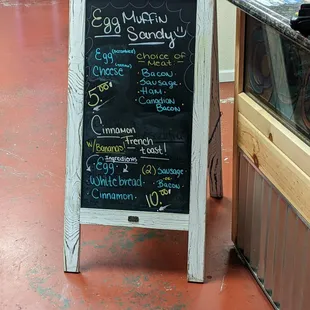 Egg Muffin
Sandy
Egg (scrambled)
Cheese
5.00
Choice of
Meat
Bacon
Sausage
Ham
Canadian
Bacon
Cinnamon
w/Bananas French
toast!
Ingredients
Egg
White bread
Cinnamon
(2) Sausage
or
Bacon
10.00